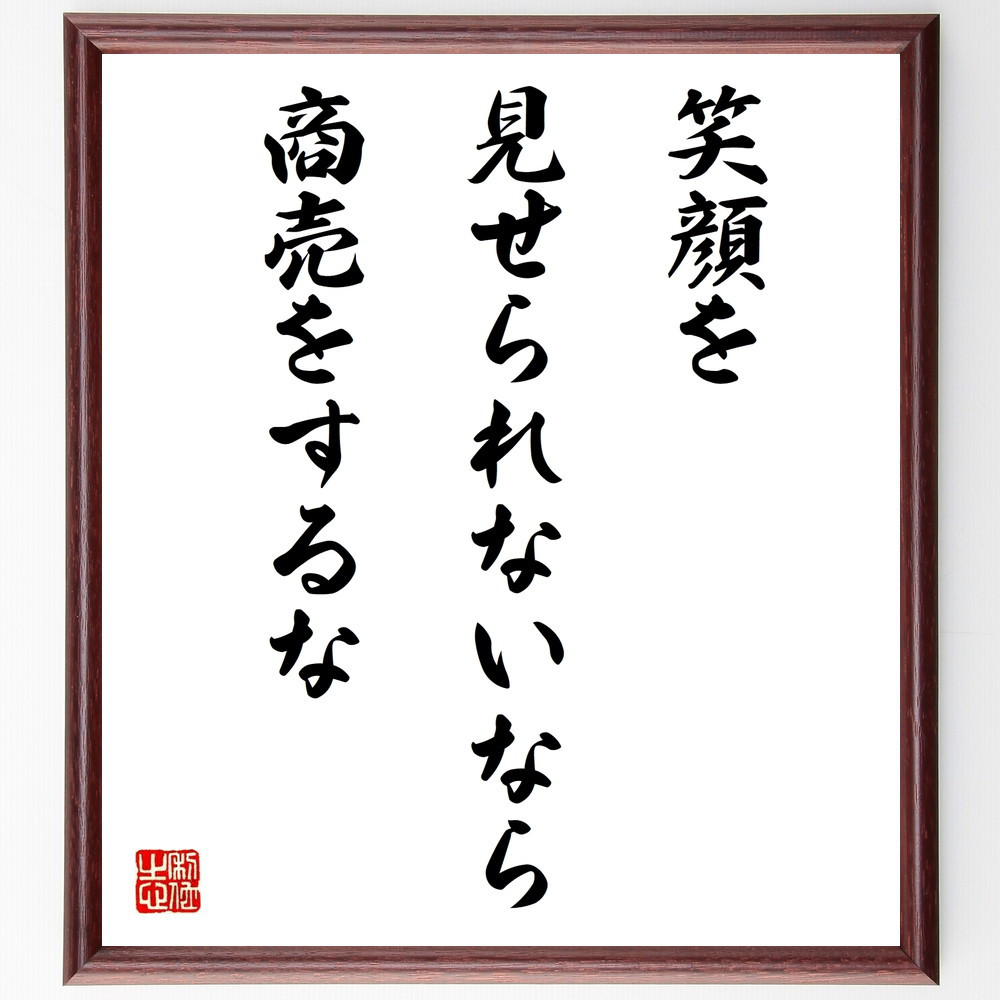 笑顔を
見せられないなら
商売をするな